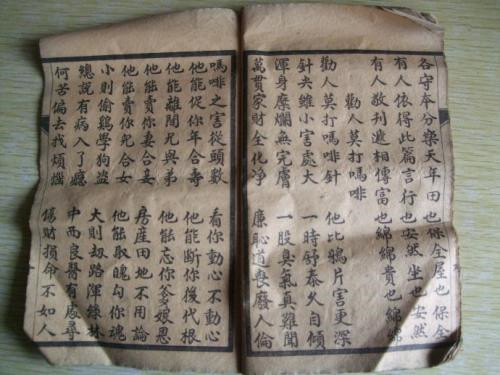 各守本分樂天年田也保全屋也保全
有人依得此篇言行也安然坐也安然
有人敬刊遞相傳富也綿綿貴也綿綿
勸人莫打嗎啡
勸人莫打嗎啡針 他比鴉片害更深
針尖雖小害處大 一時舒泰久自傾
渾身糜爛無完膚 一股臭氣真難聞
萬貫家財全化净 廉恥道喪廢人倫
嗎啡之害從頭數 看你動心不動心
他能促你年合壽 他能斷你後代根
他能離間兄與弟 他能忘你爹娘恩
他能賣你妻合妾 房產田地不用論
他能賣你兒合女 他能取魄勾你魂
小則偷鷄學狗盜 大則刼路渾綠林
總說有病入了癮 中西良醫有處尋
何苦偏去找煩惱 傷財損命不如人